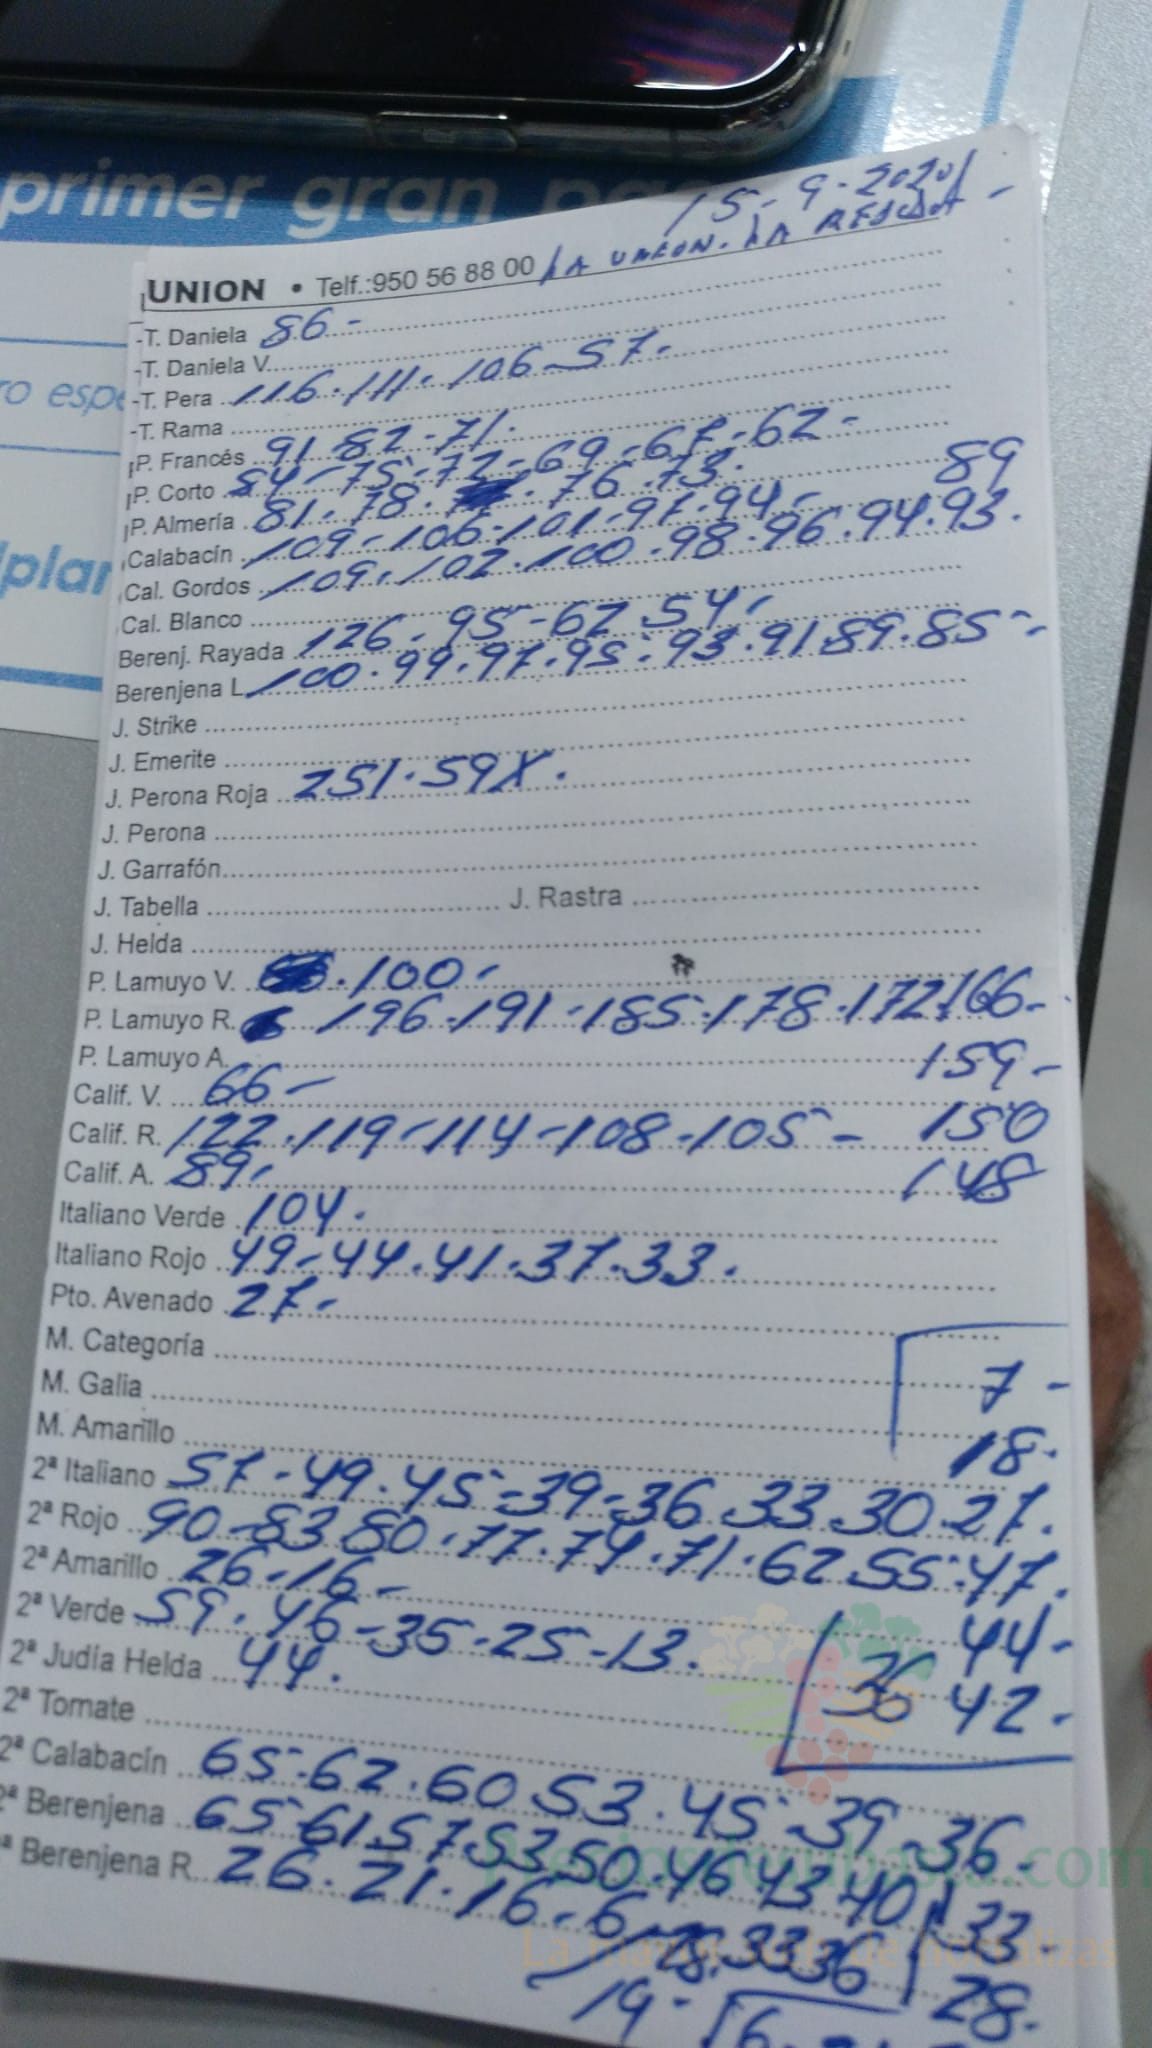 primer gran
15-9-2020
UNION • Telf.:950 56 88 00 LA UNION. LA REDONDA
-T. Daniela 86-
-T. Daniela V.
-T. Pera 116.111.106-57.
-T. Rama
P. Francés 91-82-71.
P. Corto 84-75-72-69-67-62-
P. Almería 81.78. 76.73. 89
Calabacín 109-106-101-97.94-
Cal. Gordos 109.102.100.98.96.94.93.
Cal. Blanco
Berenj. Rayada 126.95-62 54.
Berenjena L. 100.99.97.95.93.91 89.85-
J. Strike
J. Emerite
J. Perona Roja 251.59X.
J. Perona
J. Garrafón
J. Tabella J. Rastra
J. Helda
P. Lamuyo V. .100-
P. Lamuyo R. 196-191-185-178.172 166-
P. Lamuyo A. 159-
Calif. V. 66-
Calif. R. 122.119-114-108-105- 150
Calif. A. 89. 148
Italiano Verde 104.
Italiano Rojo 49-44.41.37.33.
Pto. Avenado 27-
M. Categoría 7-
M. Galia
M. Amarillo 18.
2ª Italiano 57-49.45-39-36.33.30.27.
2ª Rojo 90-83 80.77.74.71.62 55.47.
2ª Amarillo 26-16- 44-
2ª Verde 59.46-35-25-13. 36 42.
2ª Judía Helda 44.
2ª Tomate
2ª Calabacín 65-62.60 53.45-39-36.
2ª Berenjena 65-61.57.53.50.46.43.40 33.
ª Berenjena R. 26.21.16-6 28.33 36 28.
19-
Preciosdesubasta.com
La mayor de hortalizas